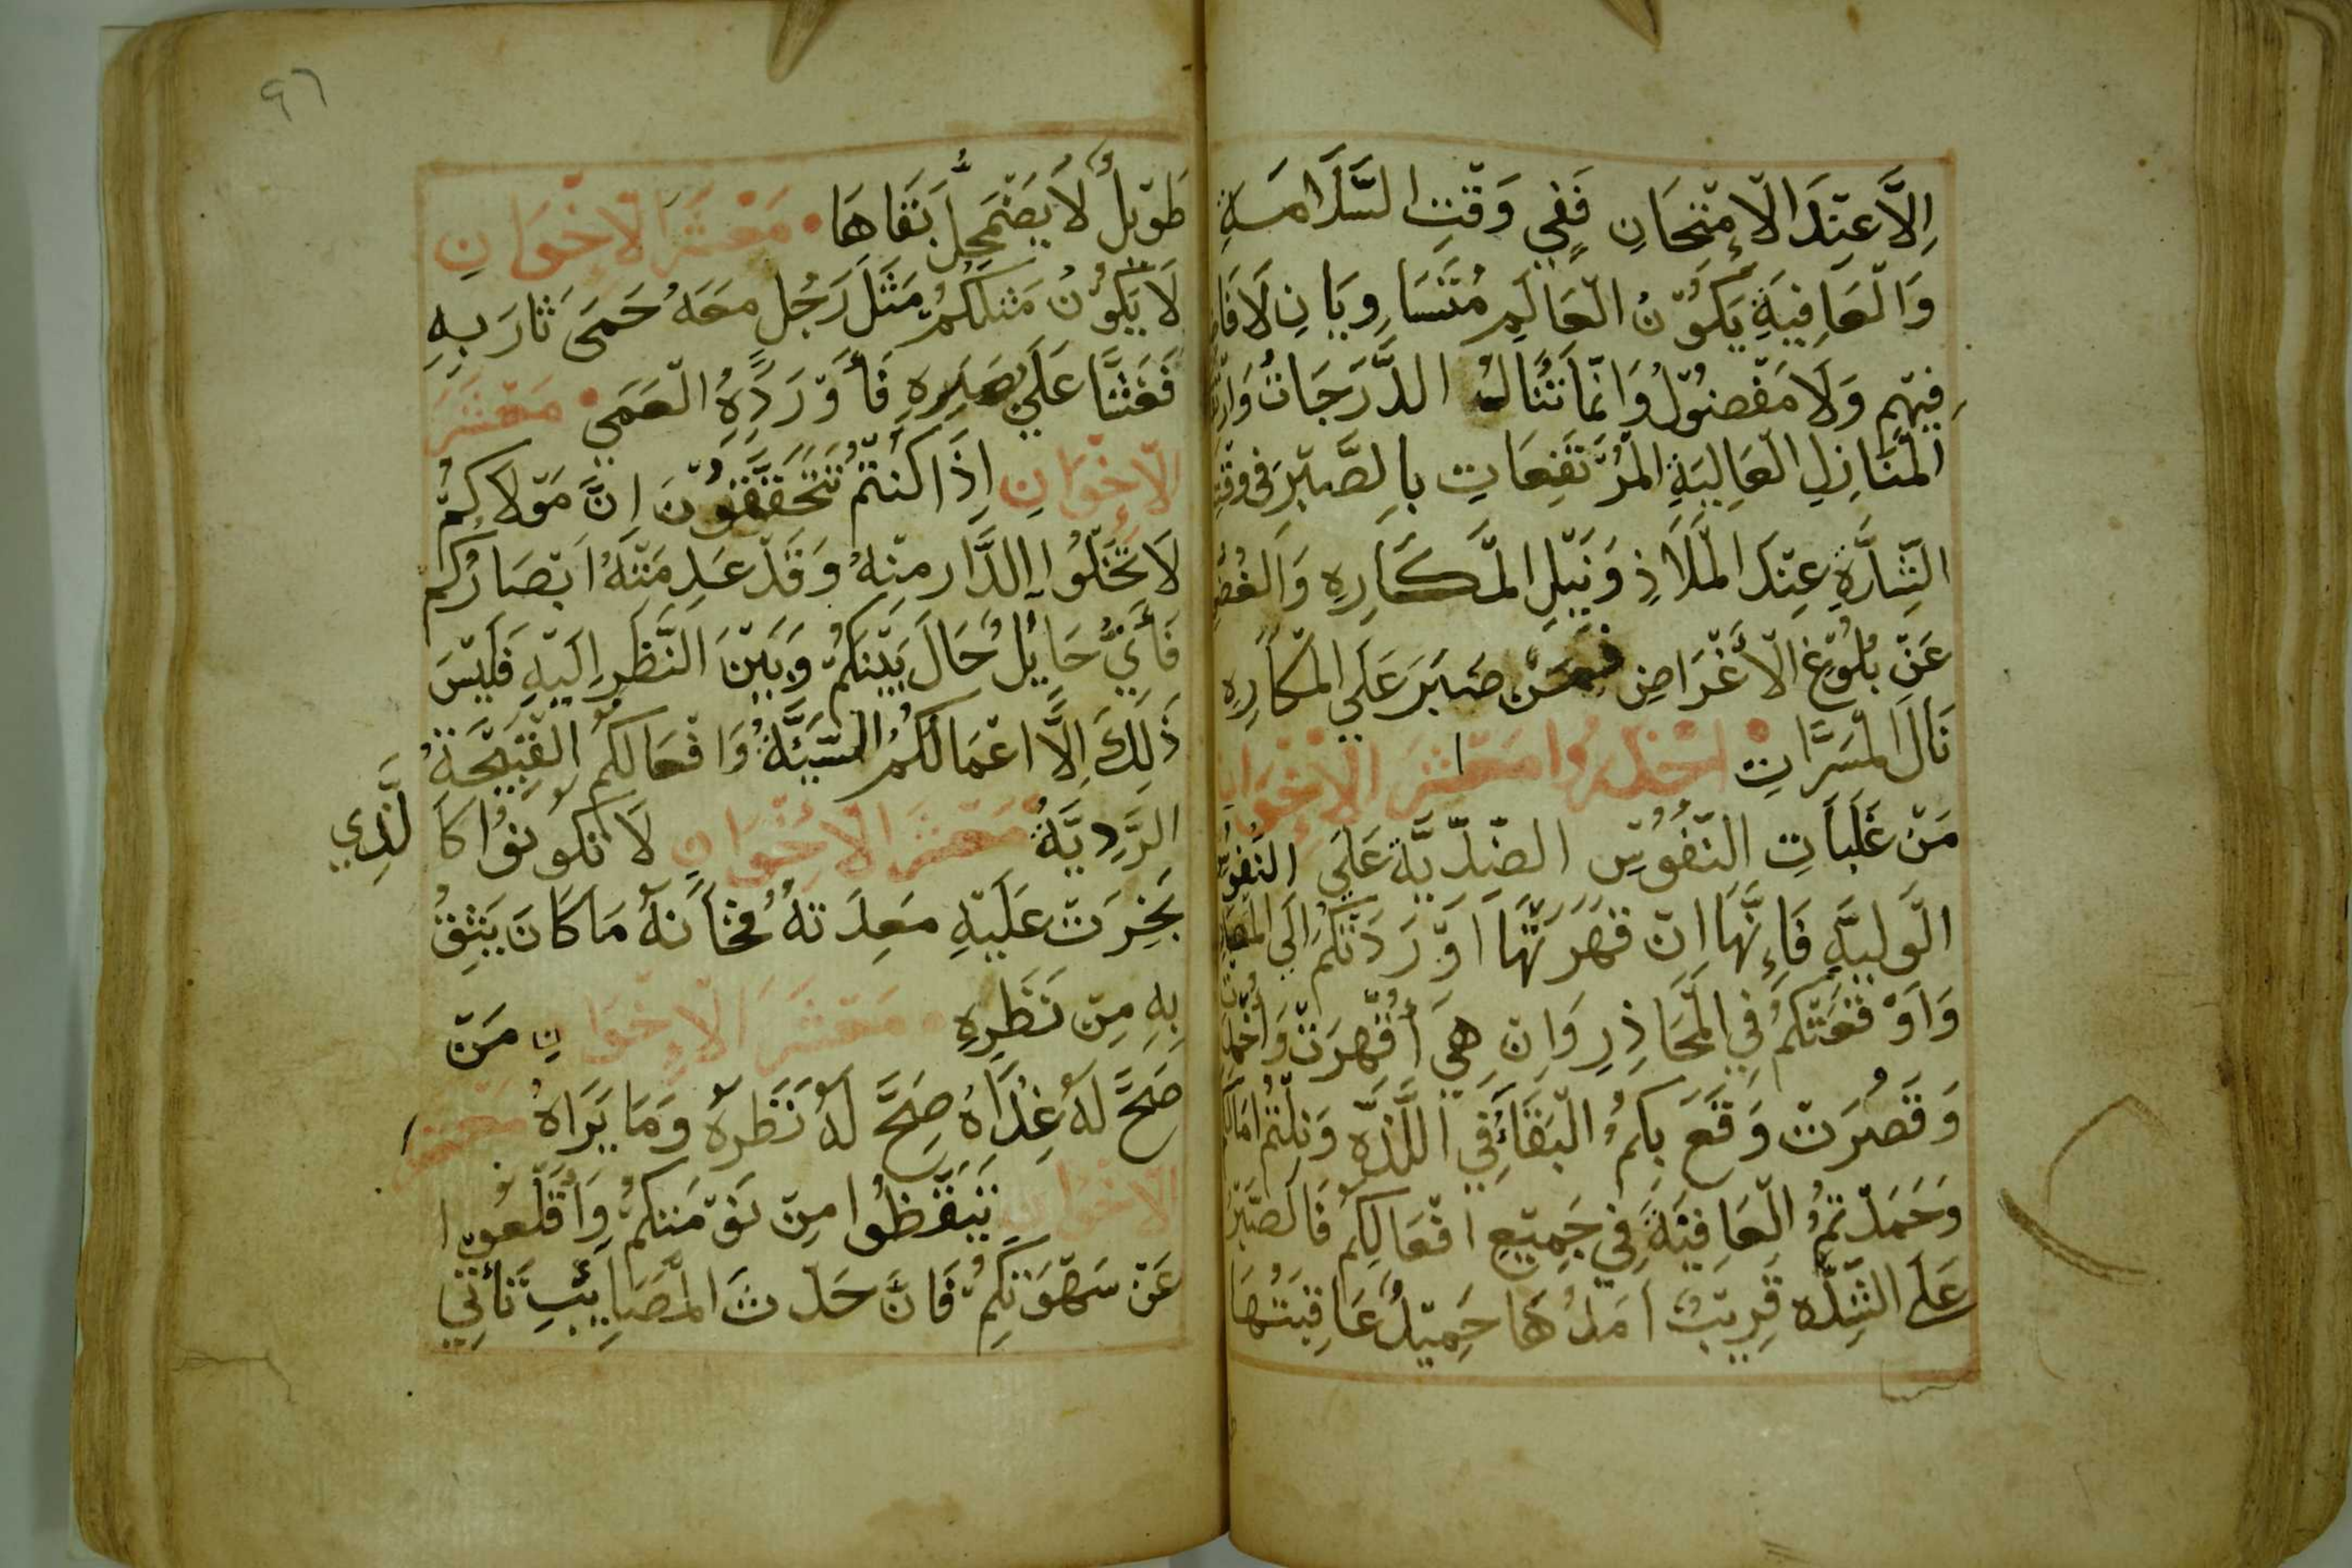 اِلَّا عِنْدَ الْاِمْتِحَانِ فَفِي وَقْتِ السَّلَامَةِ
وَالْعَافِيَةِ يَكُوْنُ الْعَالَمِ مُتَسَاوِيَانِ لَا فَا
فِيْهِمْ وَلَا مَفْضُوْلُ وَانَّمَا تُنَالُ الدَّرَجَاتُ
الْمَنَازِلِ الْعَالِيَةِ الْمُرْتَفِعَاتِ بِالصَّبْرِ فى وقت
الشِّدَّةِ عِنْدَ الْمَلَاذِ وَنَيْلِ الْمَكَارِهِ
عَنْ بُلُوْغِ الْاَغْرَاضِ فمَنْ صَبَرَ عَلَي الْمَكَارِهِ
نَالَ الْمَسَرَّاتِ احْذَرُوا مَعْشَرَ الْاِخْوَانِ
مَنْ غَلَبَاتِ النُّفُوْسِ الضِّدِّيَّة عَلَي النُّفُوْسِ
الْوَلِيَّهِ فَاِنَّهَا انْ قَهَرَتْهَا اَوْرَدَتْكُمْ اِلَي
وَاَوْقَعَتْكُمْ فِي الْمَحَاذِرِ وَانْ هِيَ اُقْهِرَتْ
وَقَصُرَتْ وَقَعَ بِكُمُ الْبَقَاءُ فِي اللَّذَّه وَنِلْتُمْ
وَحَمَدْتُمُ الْعَافِيَةَ فِي جَمِيْعِ اَفْعَالِكُمْ فَالصَّبْرُ
عَلَى الشِّدَّه قَرِيْبُ اَمَدُهَا جَمِيْلُ عَاقِبَتُهَا
٩٦
طَوْيلُ لَا يَضْمَحِلُّ بَقَاهَا • مَعْشَرَ الْاِخْوَانِ
لَا يَكُوْنُ مَثَلُكُمْ مَثَلَ رَجُلِ مَعَهُ حَمَى ثَارَ بِهِ
فَغَشَّا عَلَي بَصَرِهِ فَأَوْرَدَهُ الْعَمَى • مَعْشَرَ
الْاِخْوَانِ اِذَا كُنْتُمْ تَتَحَقَّقُوْنَ اِنَّ مَوْلَاكُمْ
لَا تَخْلُوا الدَّار مِنْهُ وَقَدْ عَدِمَتْهُ اَبْصَارُكُمْ
فَأَيُّ حَايْلُ حَالَ بَيْنَكُمْ وَبَيْنَ النَّظَرِ اِلَيْهِ فَلَيْسَ
ذَلِكَ اِلَّا اعْمَالُكُمُ السَّيِّئَةُ وَافْعَالُكُمُ الْقَبِيْحَةُ
الرَّدِيَّةُ مَعْشَرَ الْاِخْوَانِ لَا تَكُوْنُوْا كَا لَّذِي
بَخِرَتْ عَلَيْهِ مَعِدَتهُ فخَانَهُ مَا كَانَ يَثِقُ
بِهِ مِنْ نَظَرِهِ • مَعْشَرَ الْاِخْوَانِ مَنْ
صَحَّ لَهُ غِذَاهُ صَحَّ لَهُ نَظَرهُ وَمَا يَرَاهُ مَعْشَرَ
الْاِخْوَانِ تَيَقَّظُوا مِنْ نَوْمَتكُمْ وَاَقْلعُوا
عَنْ سَهْوَتكُمْ فَانَّ حَدثَ الْمَصَايِبِ تَأتِي